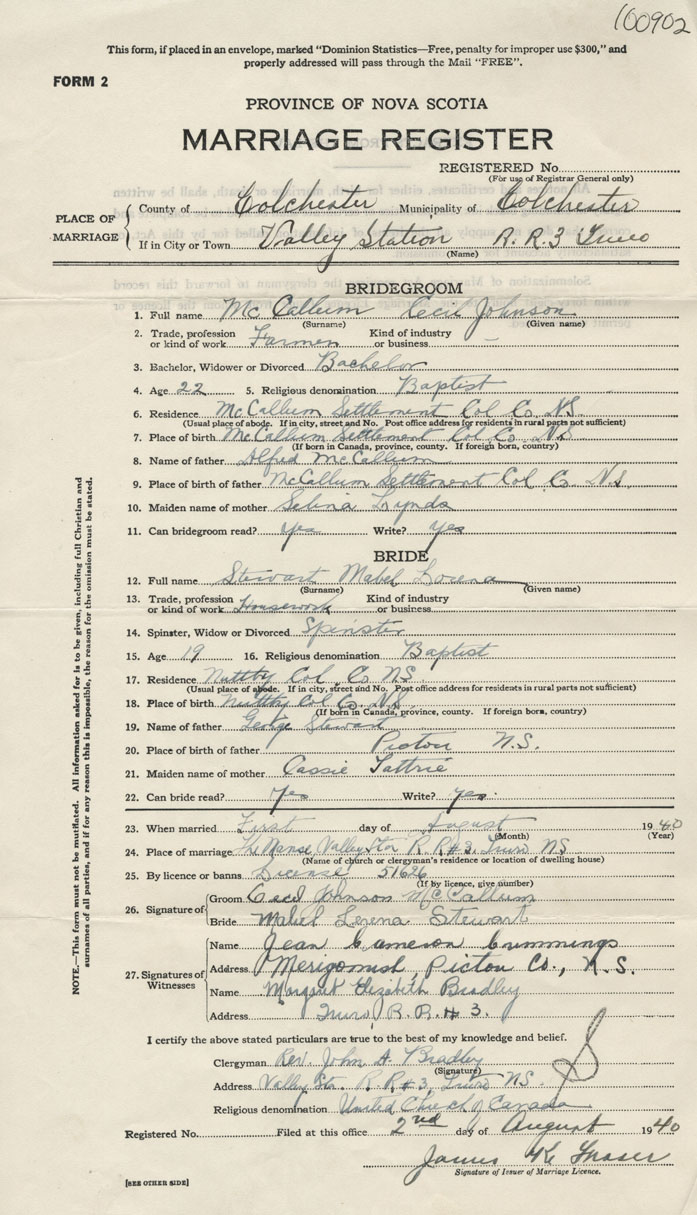 100902
This form, if placed in an envelope, marked "Dominion Statistics—Free, penalty for improper use $300," and
properly addressed will pass through the Mail "FREE".
FORM 2
PROVINCE OF NOVA SCOTIA
MARRIAGE REGISTER
REGISTERED No.
(For use of Registrar General only)
PLACE OF MARRIAGE
County of Colchester Municipality of Colchester
If in City or Town Valley Station R.R.3 Truro
(Name)
BRIDEGROOM
1. Full name McCallum Cecil Johnson
(Surname) (Given name)
2. Trade, profession or kind of work Farmer Kind of industry or business –
3. Bachelor, Widower or Divorced Bachelor
4. Age 22 5. Religious denomination Baptist
6. Residence McCallum Settlement Col. Co. N.S.
(Usual place of abode. If in city, street and No. Post office address for residents in rural parts not sufficient)
7. Place of birth McCallum Settlement Col. Co. N.S.
(If born in Canada, province, county. If foreign born, country)
8. Name of father Alfred McCallum
9. Place of birth of father McCallum Settlement Col. C. N.S.
10. Maiden name of mother Selina Lynds
11. Can bridegroom read? Yes Write? Yes
BRIDE
12. Full name Stewart Mabel Lorena
(Surname) (Given name)
13. Trade, profession or kind of work Housework Kind of industry or business
14. Spinster, Widow or Divorced Spinster
15. Age 19 16. Religious denomination Baptist
17. Residence Nuttby Col. Co. N.S.
(Usual place of abode. If in city, street and No. Post office address for residents in rural parts not sufficient)
18. Place of birth Nuttby Col. Co. N.S.
(If born in Canada, province, county. If foreign born, country)
19. Name of father George Stewart
20. Place of birth of father Pictou N.S.
21. Maiden name of mother Cassie Tattrie
22. Can bride read? Yes Write? Yes.
23. When married First day of August 1940
(Month) (Year)
24. Place of marriage The Manse, Valley Stn R.R#3, Truro NS
(Name of church or clergyman's residence or location of dwelling house)
25. By licence or banns License 51626
(If by licence, give number)
26. Signature of
Groom Cecil Johnson McCallum
Bride Mabel Lorena Stewart
27. Signatures of Witnesses
Name Jean Cameron Cummings
Address Merigomish, Pictou Co., N.S.
Name Margaret Elizabeth Bradley
Address Truro, R.R.#3.
I certify the above stated particulars are true to the best of my knowledge and belief.
Clergyman Rev. John A. Bradley
(Signature)
Address Valley Stn. R.R#3, Truro NS.
Religious denomination United Church of Canada
Registered No. Filed at this office 2nd day of August 1940
James K. Fraser
Signature of Issuer of Marriage Licence.
[SEE OTHER SIDE]
NOTE.—This form must not be mutilated. All information asked for is to be given, including full Christian and
surnames of all parties, and if for any reason this is impossible, the reason for the omission must be stated.